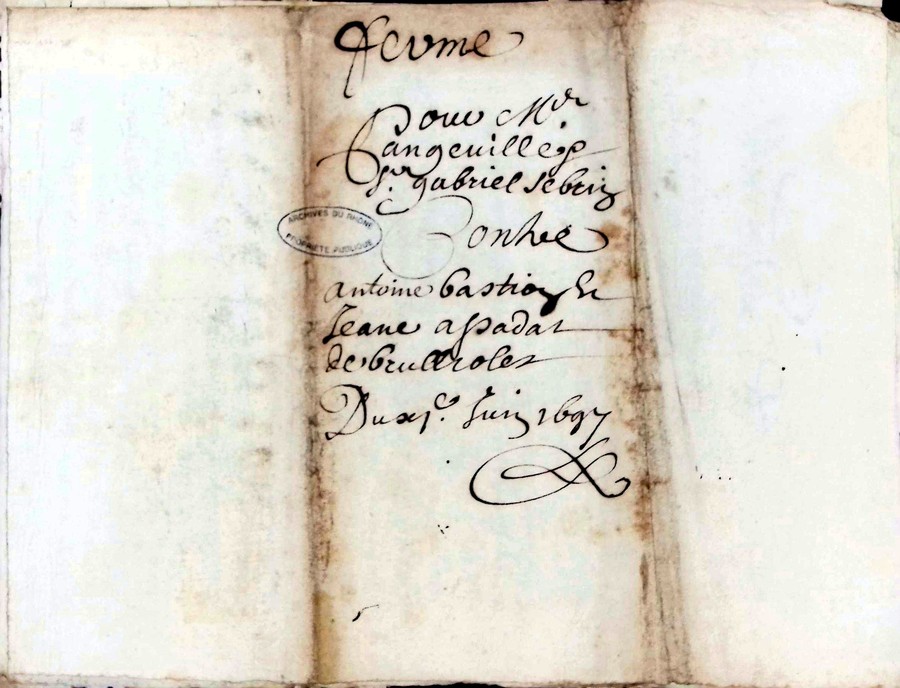 ferme
Pour Mr
Langeville &
Sr. gabriel Sebrij
Contre
antoine bastion Et
Jeane apadat
de brullioles
Du xje. Juin 1697
ARCHIVES DU RHÔNE
PROPRIÉTÉ PUBLIQUE